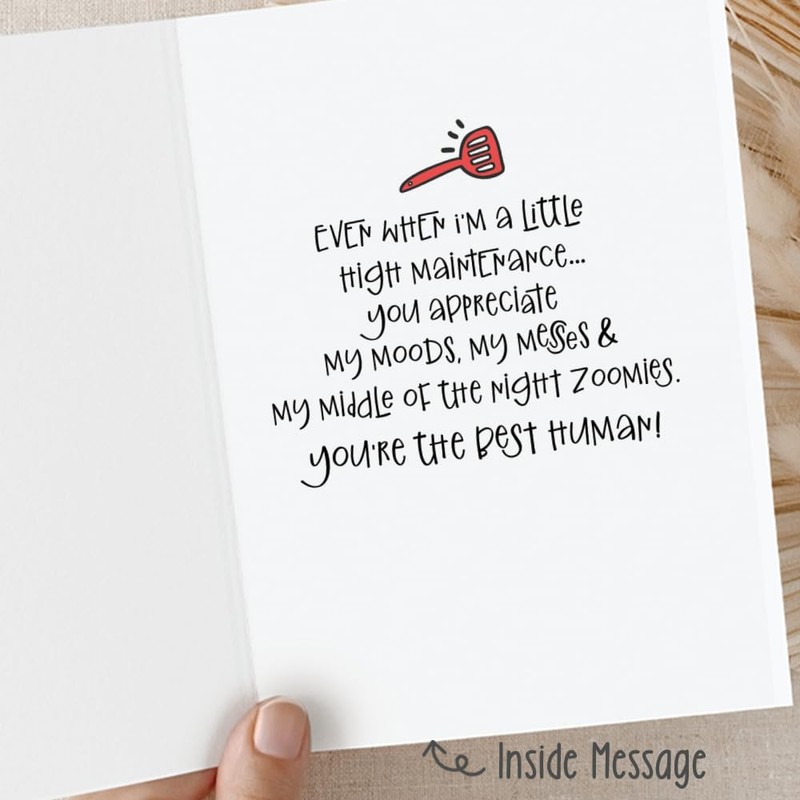 EVEN WHEN i'M a LittLE
HIGH MAINTENANCE...
YOU APPRECIATE
MY MOODS, MY MESSES &
MY MIddLE OF tHE NIGHt ZOOMIES.
YOU'RE tHE BEST HUMAN!
Inside Message